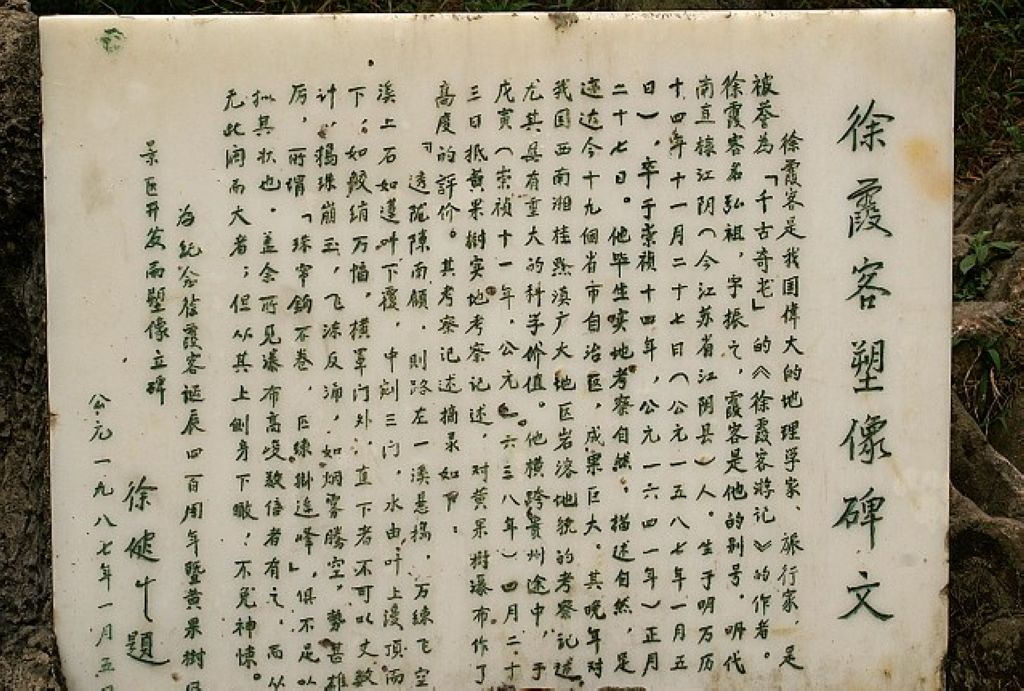 徐霞客塑像碑文
徐霞客是我国偉大的地理学家、旅行家,是
被誉为「千古奇老」的《徐霞客游记》的作者。
徐霞客名弘祖,字振之,霞客是他的别号。明代
南直棣江阴(今江苏省江阴县)人。生于明万历
十四年十一月二十七日(公元一五八七年一月五
日),卒于崇祯十四年,公元一六四一年)正月
二十七日。他毕生实地考察自然,描述自然,足
迹达今十九個省市自治區,成果巨大。其晚年对
我国西南湘桂黔滇广大地区岩溶地貌的考察记述
尤其具有重大的科学价值。他横跨贵州途中,于
戊寅(崇祯十一年,公元一六三八年)四月二十
三日抵黄果樹实地考察记述,对黄果樹瀑布作了
高度的評价。其考察记述摘录如下:
「透陇隙南顧,则路左一溪悬捣,万練飞空
溪上石如蓮叶下覆,中剜三门,水由叶上漫頂而
下,如鲛綃万幅,横罩门外,直下者不可以丈数
计,搗珠崩玉,飞沫反涌,如烟雾騰空,勢甚雄
厉,所謂「珠帘鈎不卷,匹練掛遥峰」,俱不足以
拟其状也。盖余所见瀑布高峻数倍者有之,而从
无此闊而大者;但从其上侧身下瞰,不免神悚。
为纪念徐霞客诞辰四百周年暨黄果樹
景区开发而塑像立碑
徐健生題
公元一九八七年一月五